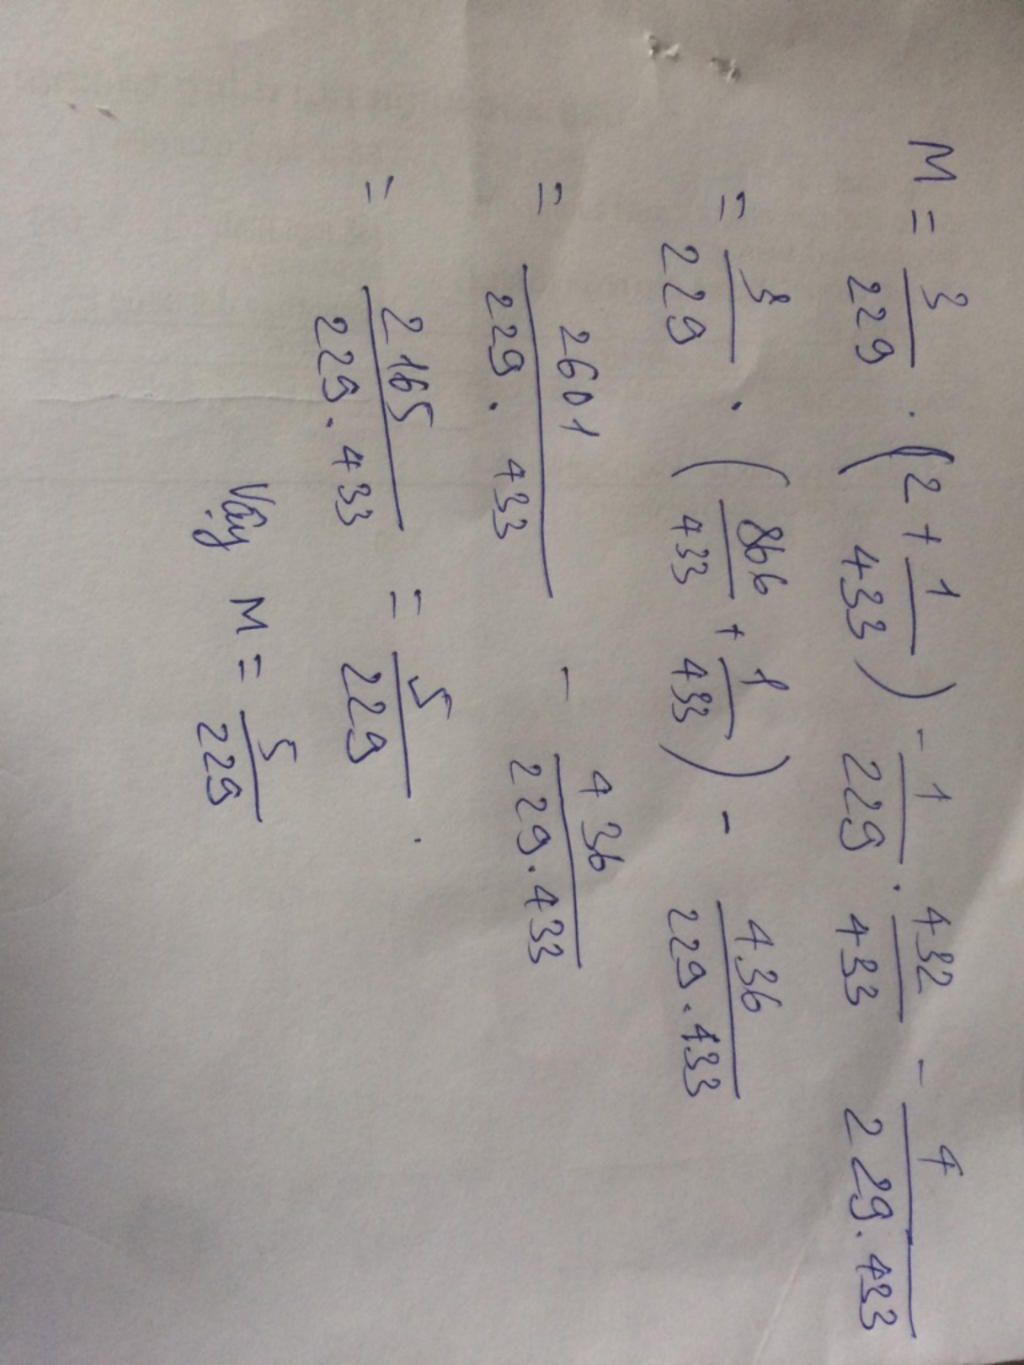 M = 3/229 . (2 + 1/433) - 1/229 . 432/433 - 4/229.433
= 3/229 . (866/433 + 1/433) - 436/229.433
= 2601/229.433 - 436/229.433
= 2165/229.433 = 5/229.
Vậy M = 5/229